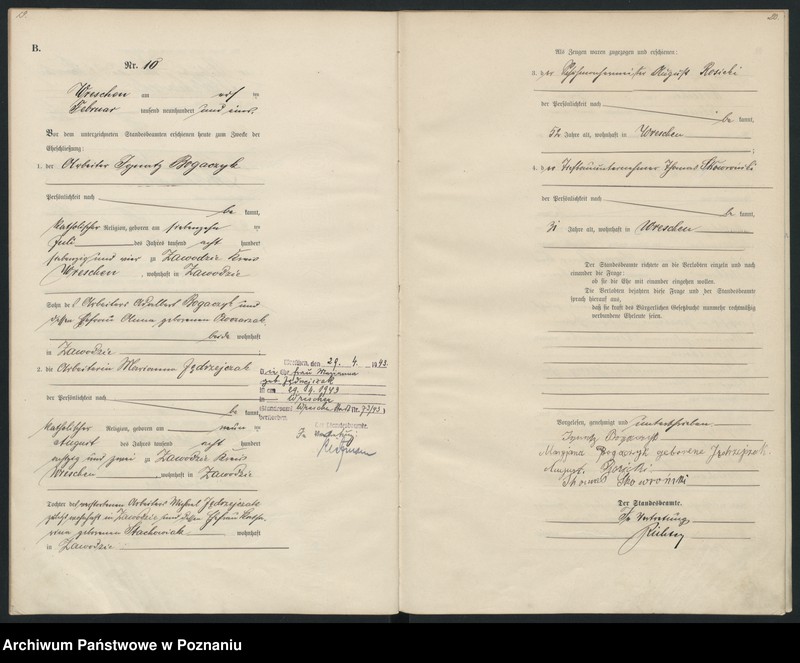 19.
B.
Nr. 10
Wreschen am elf ten
Februar tausend neunhundert und eins.
Vor dem unterzeichneten Standesbeamten erschienen heute zum Zwecke der
Eheschließung:
1. der Arbeiter Ignatz Bogaczyk
Persönlichkeit nach
be kannt,
katholischer Religion, geboren am siebenzehn ten
Juli des Jahres tausend acht hundert
siebenzig und vier zu Zawodzie Kreis
Wreschen, wohnhaft in Zawodzie
Sohn des Arbeiters Adalbert Bogaczyk und
dessen Ehefrau Anna geborenen
beide wohnhaft
in Zawodzie
2. die Arbeiterin Marianna Jędrzejczak
der Persönlichkeit nach
be kannt,
katholischer Religion, geboren am neun ten
August des Jahres tausend acht hundert
achtzig und zwei zu Zawodzie Kreis
Wreschen, wohnhaft in Zawodzie
Tochter des verstorbenen Arbeiters Michael Jędrzejczak
zuletzt wohnhaft in Zawodzie und dessen Ehefrau Katha-
rina geborenen Stachowiak wohnhaft
in Zawodzie
Wreschen, den 29. 4. 1943
Die Ehefrau Marianna
geb. Jędrzejczak
ist am 29.04.1943
in Wreschen
(Standesamt Wreschen Nr. 73/43)
verstorben.
Der Standesbeamte.
In Vertretung
20.
Als Zeugen waren zugezogen und erschienen:
3. der Schuhmachermeister August Rosicki
der Persönlichkeit nach
be kannt,
52 Jahre alt, wohnhaft in Wreschen
;
4. der Thomas Skowroński
der Persönlichkeit nach
be kannt,
31 Jahre alt, wohnhaft in Wreschen
Der Standesbeamte richtete an die Verlobten einzeln und nach
einander die Frage:
ob sie die Ehe mit einander eingehen wollen.
Die Verlobten bejahten diese Frage und der Standesbeamte
sprach hierauf aus,
daß sie kraft des Bürgerlichen Gesetzbuchs nunmehr rechtmäßig
verbundene Eheleute seien.
Vorgelesen, genehmigt und unterschrieben.
Ignatz Bogaczyk
Maryjana Bogaczyk geborene Jędrzejczak.
August Rosicki
Thomas Skowroński
Der Standesbeamte.
In Vertretung
Archiwum Państwowe w Poznaniu